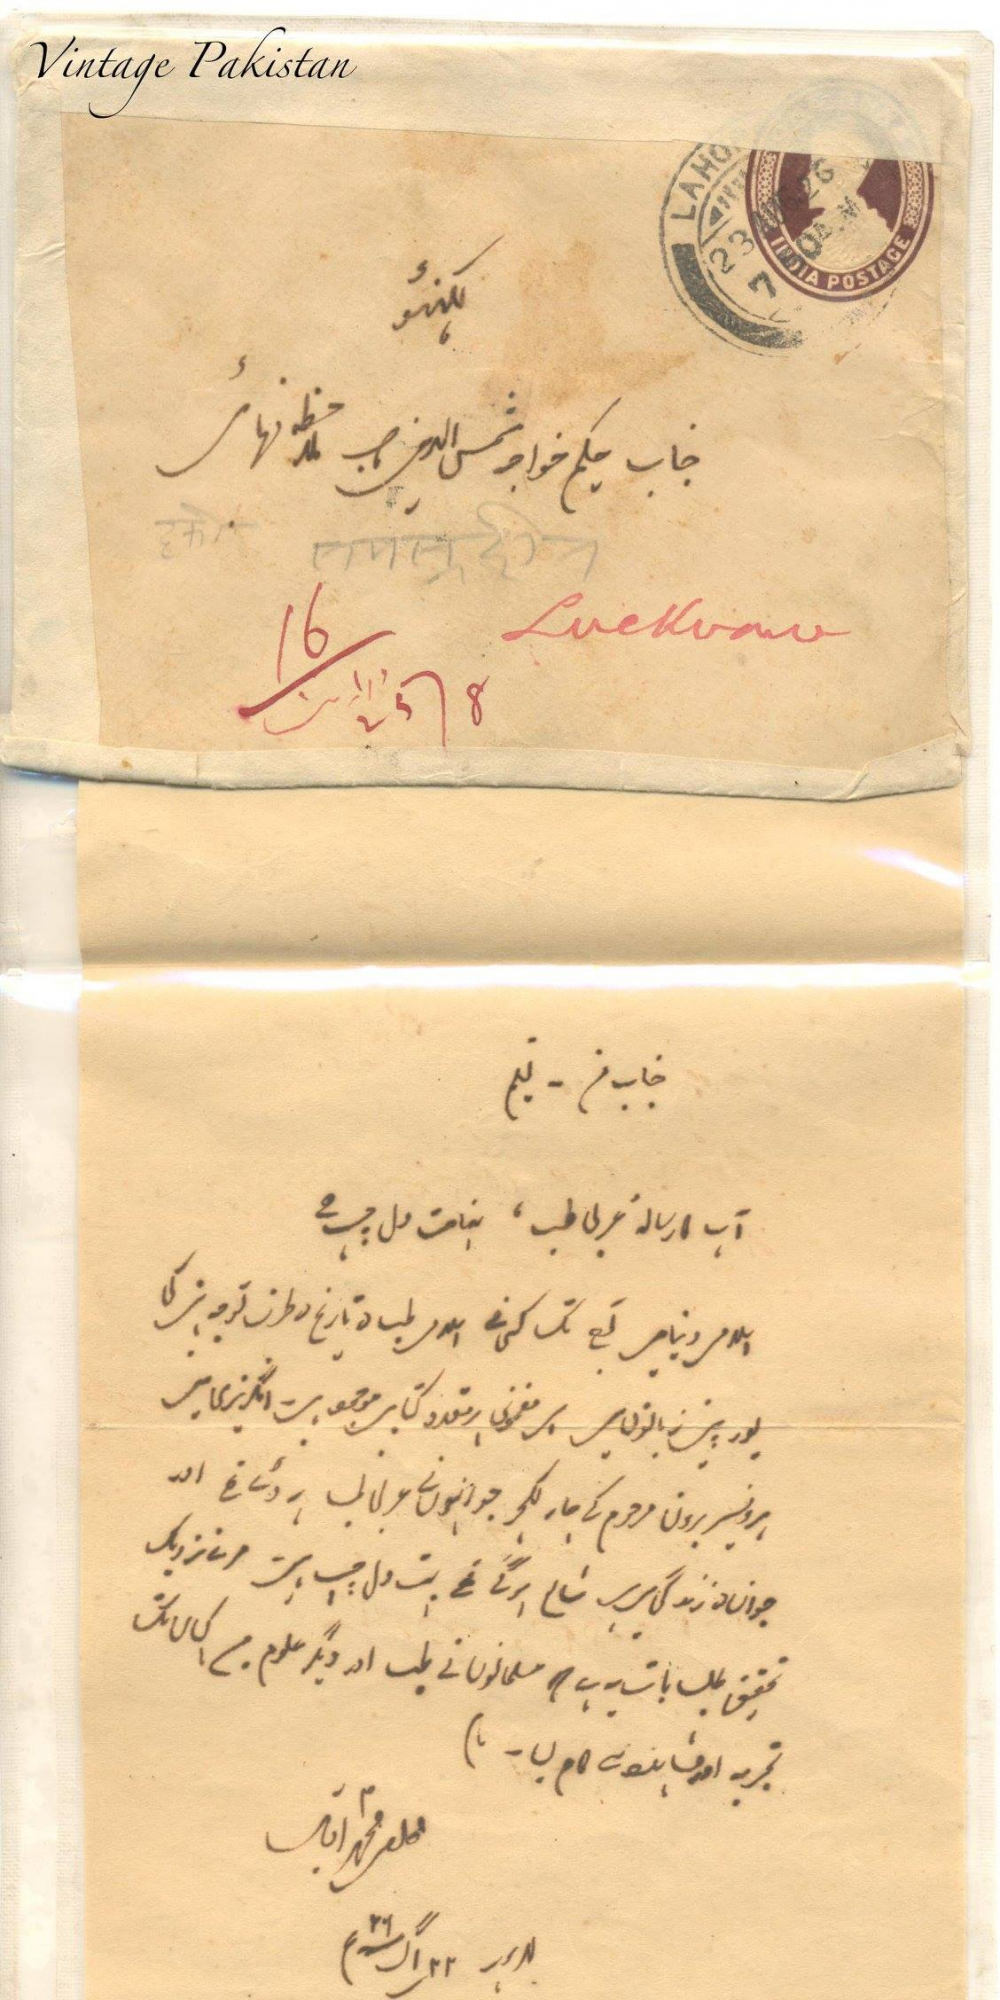 Vintage Pakistan
LAHO
23 AUG 26
7
INDIA POSTAGE
لکھنؤ
جناب حکیم خواجہ شمس الدین صاحب
Lucknow
16
25/8
جناب من - تسلیم
آپ کا رسالہ عربی طب، نہایت دل چسپ ہے
اسلامی دنیا میں آج تک کسی نے اسلامی طب کی تاریخ کی طرف توجہ نہیں کی
یورپین زبانوں میں اس مضمون پر متعدد کتابیں موجود ہیں انگریزی میں
پروفیسر برون مرحوم کے چار لکچر جو انہوں نے عربی طب پر دئے تھے اور
جو ان کی زندگی ہی میں شائع ہو گئے تھے بہت دل چسپ ہیں میرے نزدیک
تحقیق طلب بات یہ ہے کہ مسلمانوں نے طب اور دیگر علوم میں کہاں تک
تجربہ اور مشاہدہ سے کام لیا -
مخلص محمد اقبال
لاہور ۲۲ اگست ۲۶ء